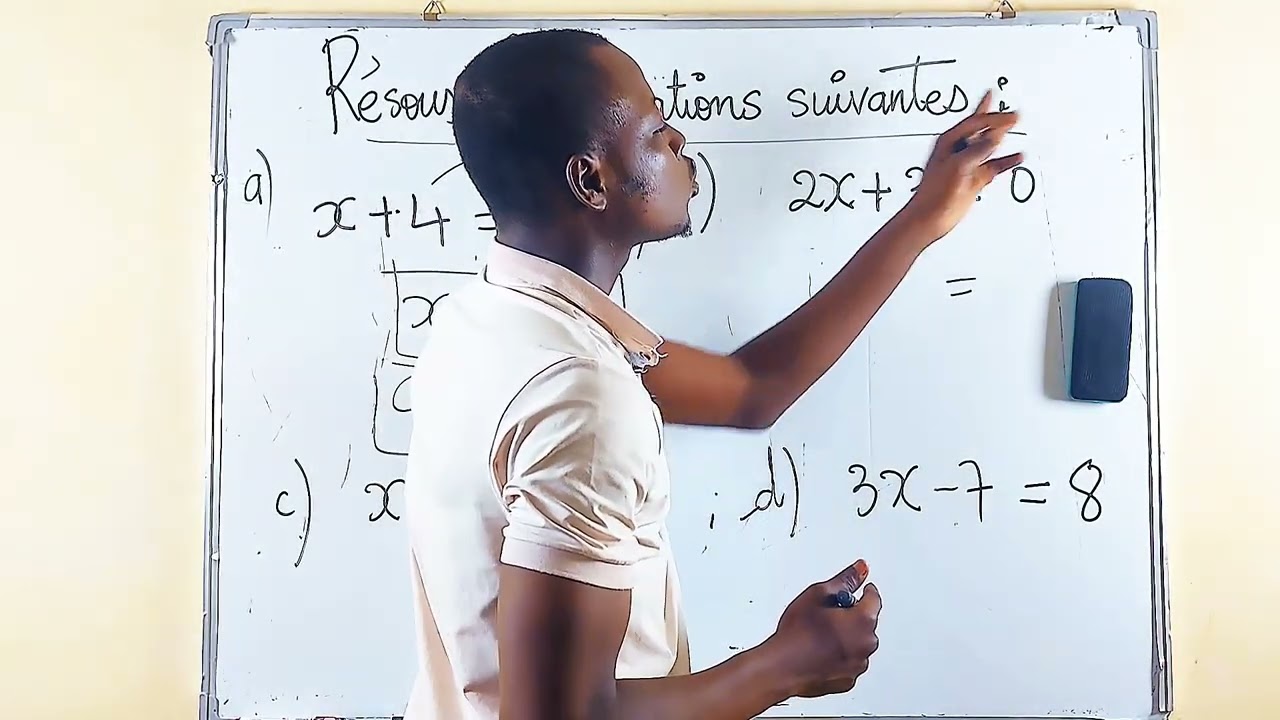 Résous ations suivantes :
a) x + 4 = ) 2x + 0
x =
c) x ; d) 3x - 7 = 8